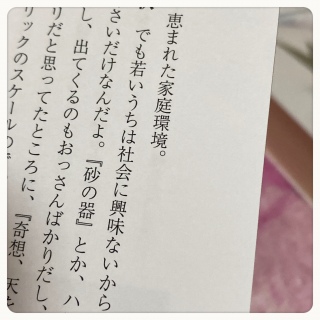 恵まれた家庭環境。
でも若いうちは社会に興味ないから
さいだけなんだよ。『砂の器』とか、ハ
し、出てくるのもおっさんばかりだし、
リだと思ってたところに、『奇想、天を
リックのスケールの